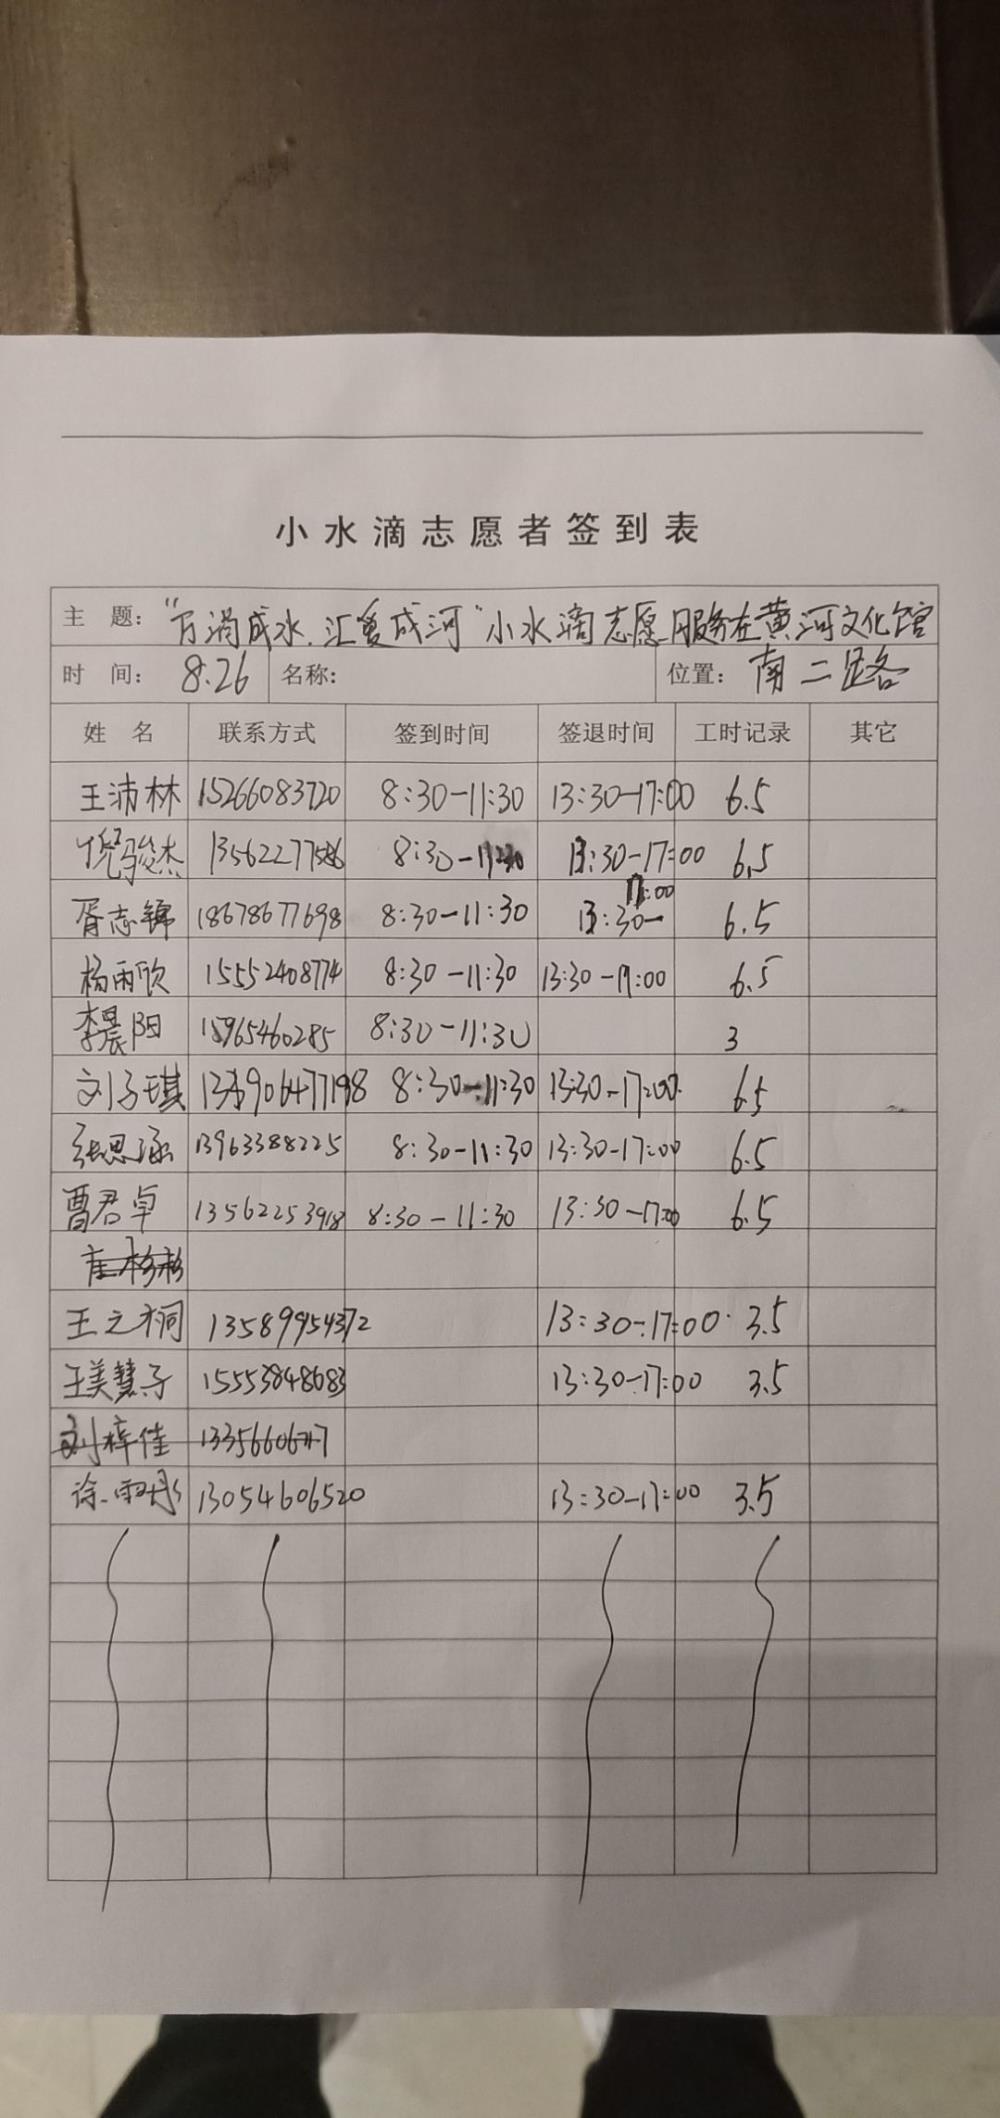 小水滴志愿者签到表
主 题：“万涓成水.汇爱成河”小水滴志愿服务在黄河文化馆
时 间：8.26 名称： 位置：南二路
姓 名 联系方式 签到时间 签退时间 工时记录 其它
王沛林 15266083720 8:30-11:30 13:30-17:00 6.5
倪骏杰 8:30-11:30 13:30-17:00 6.5
胥志锦 18678677698 8:30-11:30 13:30-17:00 6.5
杨雨欣 15552408774 8:30-11:30 13:30-17:00 6.5
李晨阳 15965460285 8:30-11:30 3
刘子琪 8:30-11:30 13:30-17:00 6.5
张思涵 13963388225 8:30-11:30 13:30-17:00 6.5
曹君卓 13562253918 8:30-11:30 13:30-17:00 6.5
崔杉杉
王之桐 13589954372 13:30-17:00 3.5
王美慧子 15553848683 13:30-17:00 3.5
刘梓佳
徐雨彤 13054606520 13:30-17:00 3.5